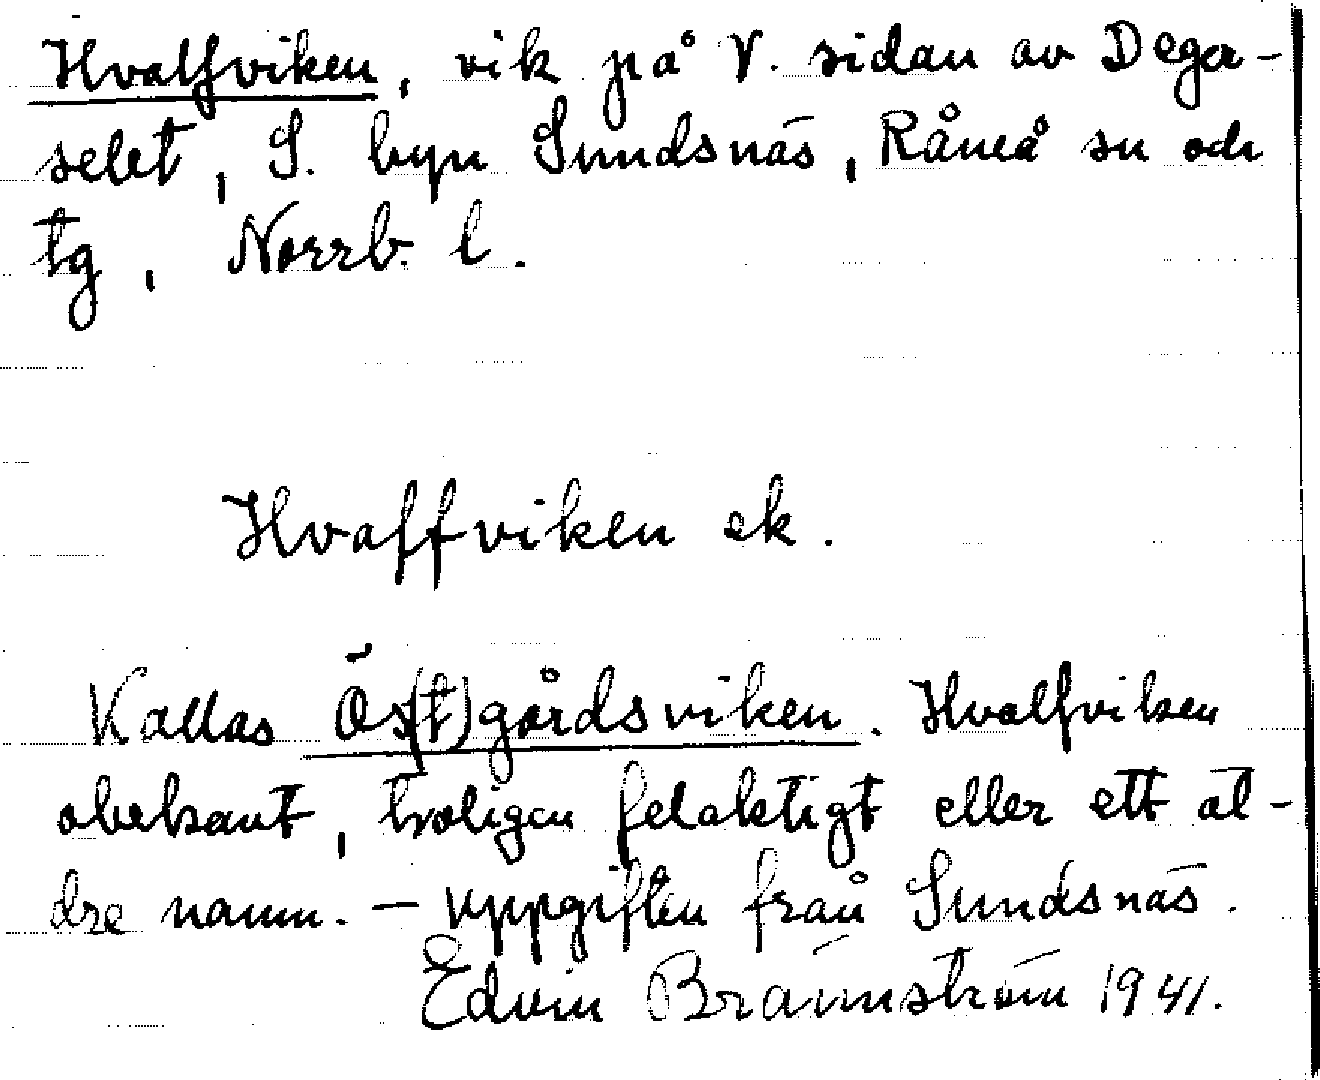 Hvalfviken, vik på V. sidan av Deger-
selet, S. byn Sundsnäs, Råneå sn och
tg, Norrb. l.
Hvalfviken ek.
Kallas Ös(t)gårdsviken. Hvalfviken
obekant, troligen felaktigt eller ett äl-
dre namn. — Uppgiften från Sundsnäs.
Edvin Brännström 1941.